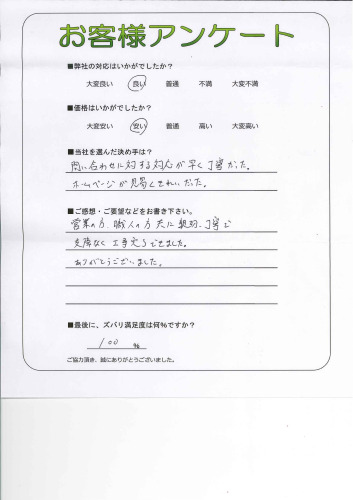 お客様アンケート
■弊社の対応はいかがでしたか？
大変良い 良い 普通 不満 大変不満
■価格はいかがでしたか？
大変安い 安い 普通 高い 大変高い
■当社を選んだ決め手は？
問い合わせに対する対応が早く丁寧だった。
ホームページが見易くきれいだった。
■ご感想・ご要望などをお書き下さい。
営業の方、職人の方 共に親切、丁寧で
支障なく工事完了できました。
ありがとうございました。
■最後に、ズバリ満足度は何%ですか？
100 %
ご協力頂き、誠にありがとうございました。